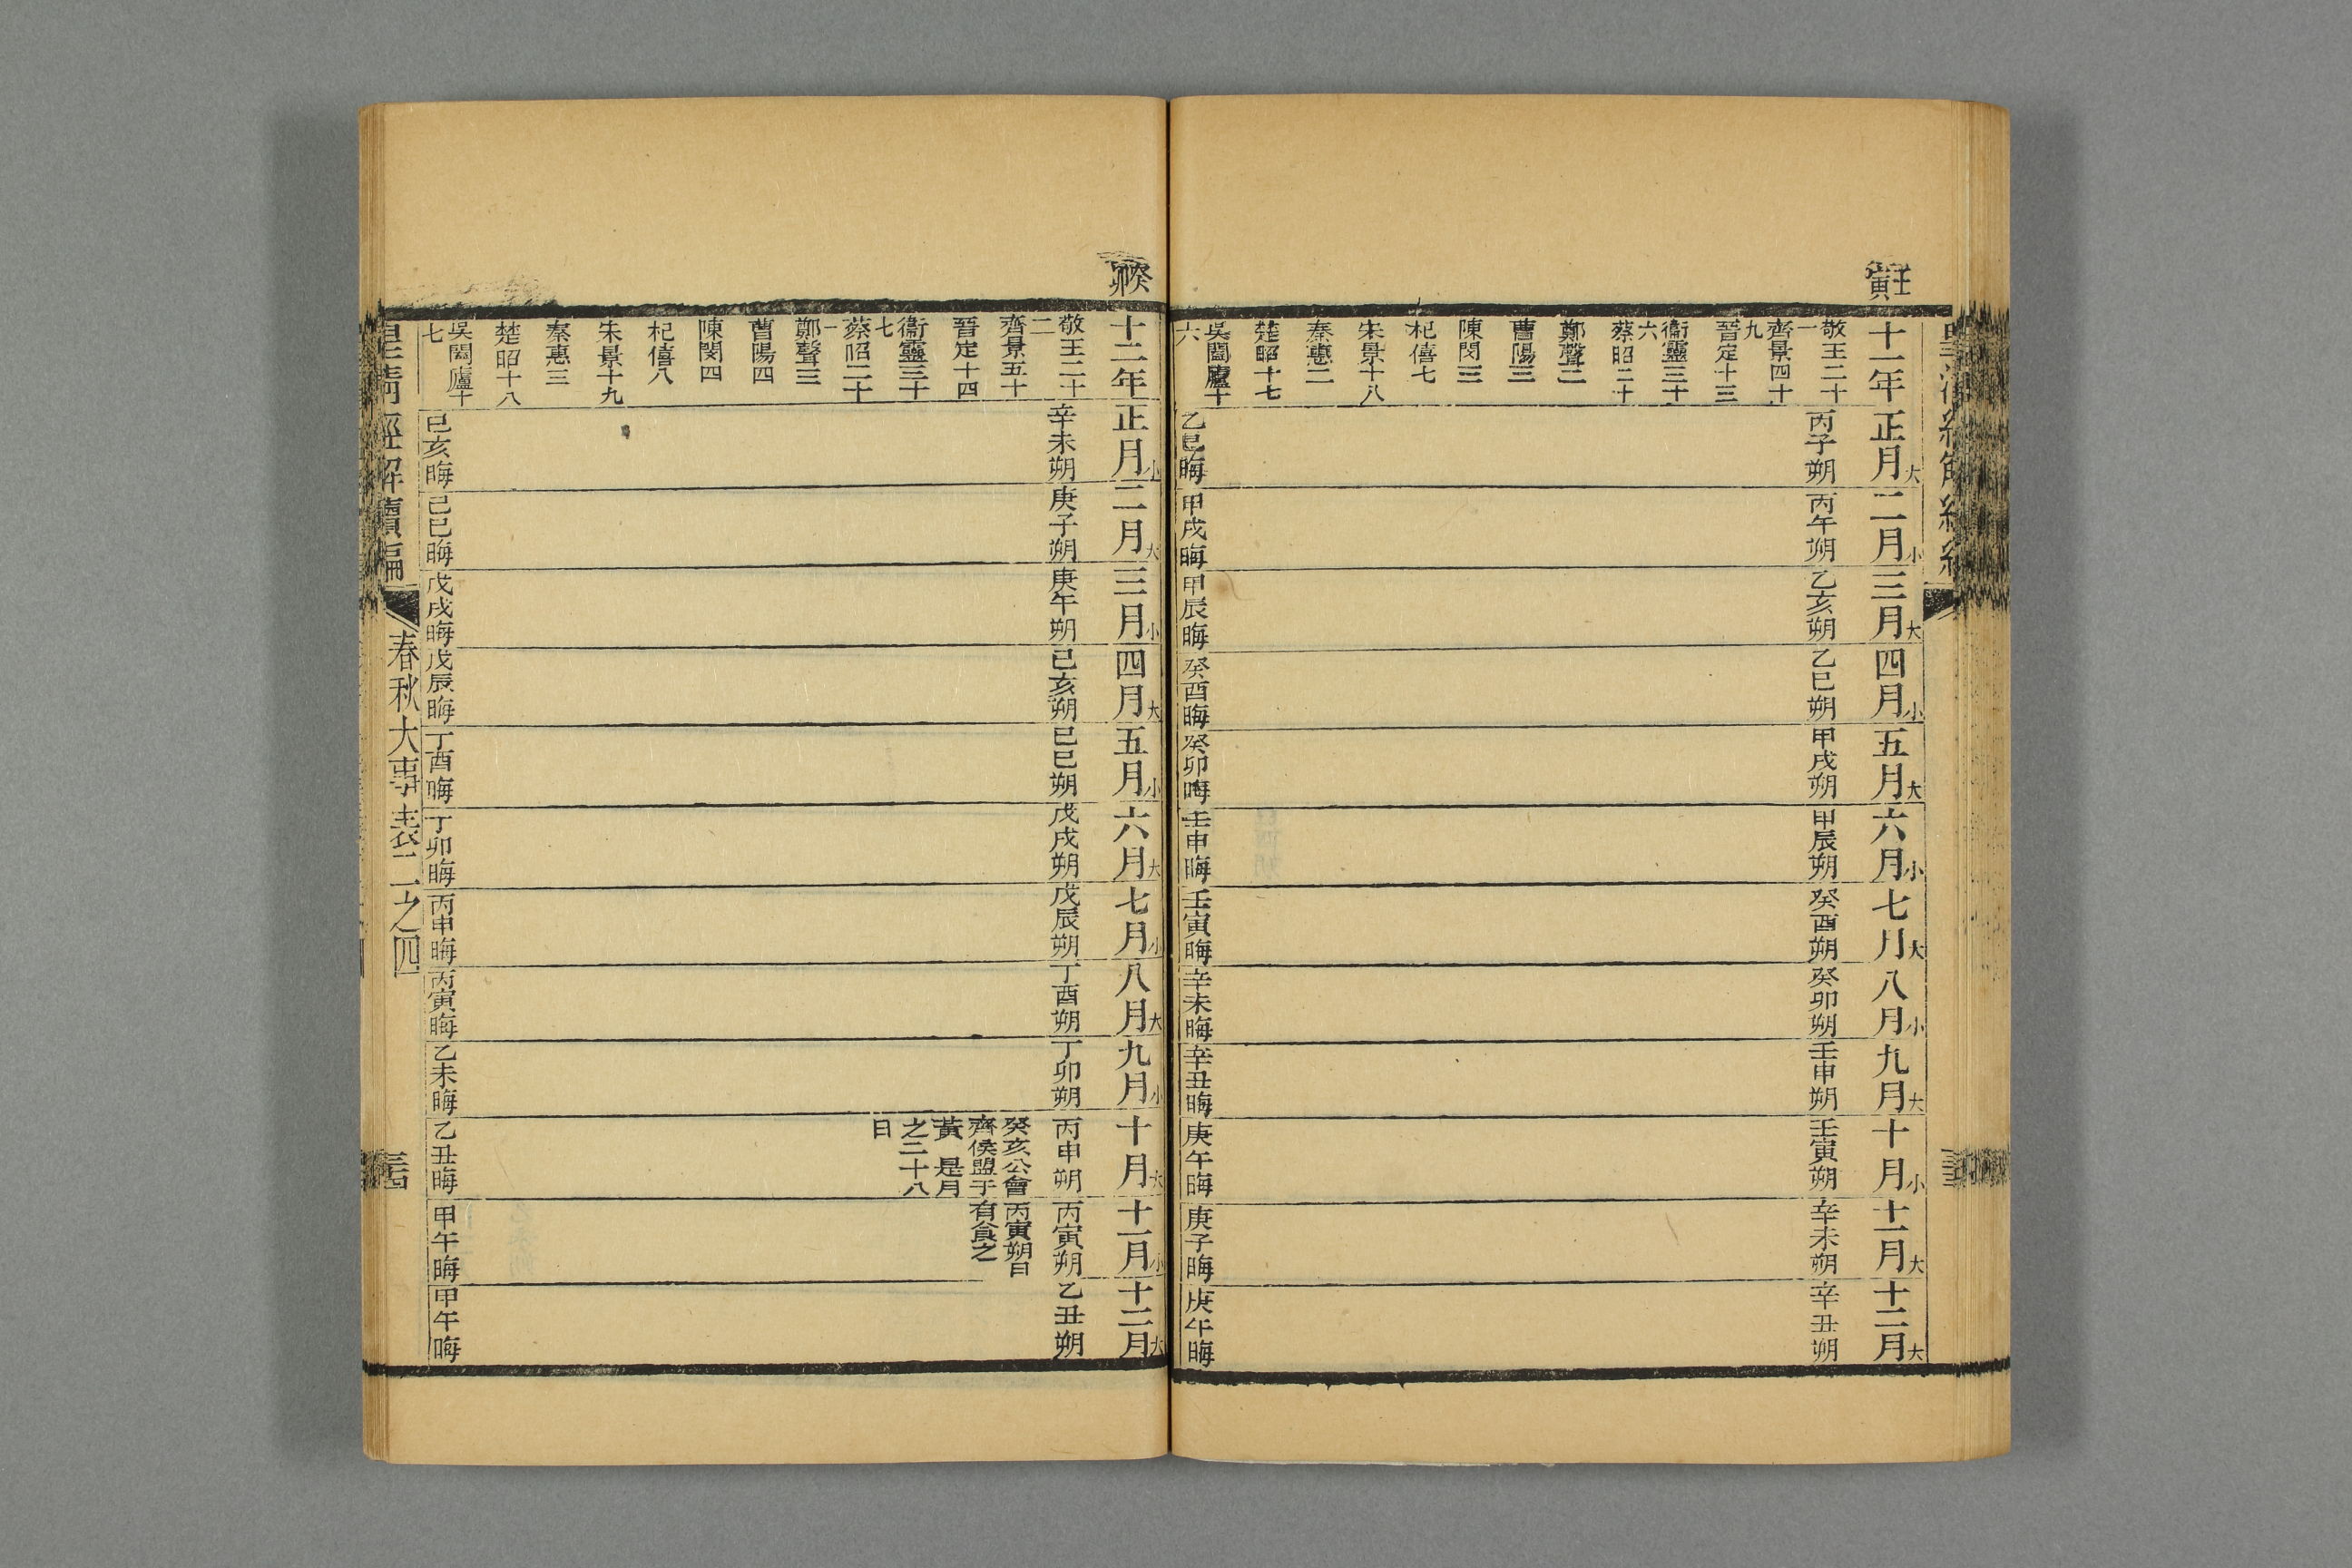 壬寅
十一年 正月大 二月小 三月大 四月小 五月大 六月小 七月大 八月小 九月大 十月小 十一月大 十二月大
敬王二十一
丙子朔 丙午朔 乙亥朔 乙巳朔 甲戌朔 甲辰朔 癸酉朔 癸卯朔 壬申朔 壬寅朔 辛未朔 辛丑朔
齊景四十九
晉定十三
衞靈三十六
蔡昭二十
鄭聲二
曹陽三
陳閔三
杞僖七
宋景十八
秦惠二
楚昭十七
吳闔廬十六
乙巳晦 甲戌晦 甲辰晦 癸酉晦 癸卯晦 壬申晦 壬寅晦 辛未晦 辛丑晦 庚午晦 庚子晦 庚午晦
癸卯
十二年 正月小 二月大 三月小 四月大 五月小 六月大 七月小 八月大 九月小 十月大 十一月小 十二月大
敬王二十二
辛未朔 庚子朔 庚午朔 己亥朔 己巳朔 戊戌朔 戊辰朔 丁酉朔 丁卯朔 丙申朔 丙寅朔 乙丑朔
齊景五十
晉定十四
衞靈三十七
蔡昭二十一
鄭聲三
曹陽四
陳閔四
杞僖八
宋景十九
秦惠三
楚昭十八
吳闔廬十七
癸亥公會
齊侯盟于
黃 是月
之二十八
日
丙寅朔日
有食之
己亥晦 己巳晦 戊戌晦 戊辰晦 丁酉晦 丁卯晦 丙申晦 丙寅晦 乙未晦 乙丑晦 甲午晦 甲午晦
皇清經解續編 春秋大事表二之四 三四